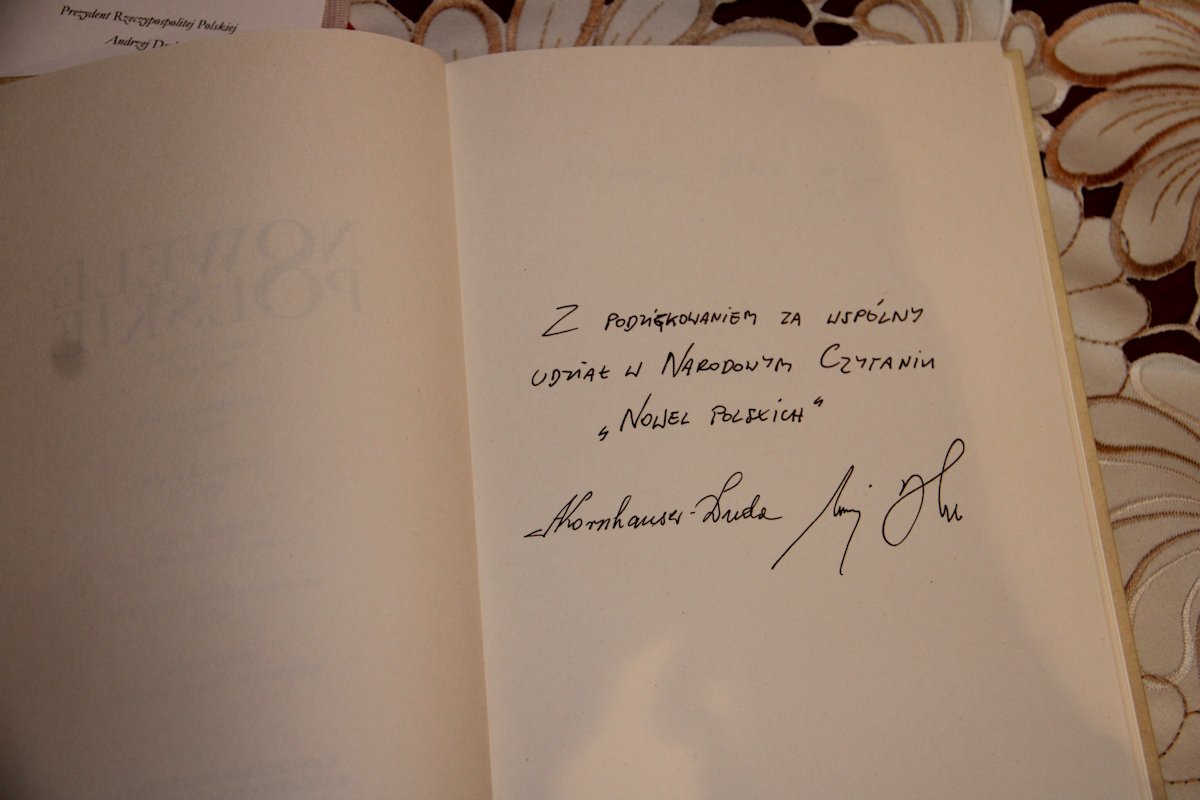 Prezydent Rzeczypospolitej Polskiej
Andrzej
NOWELE
POLSKIE
Z PODZIĘKOWANIEM ZA WSPÓLNY
UDZIAŁ W NARODOWYM CZYTANIU
„NOWEL POLSKICH"
AKornhauser-Duda